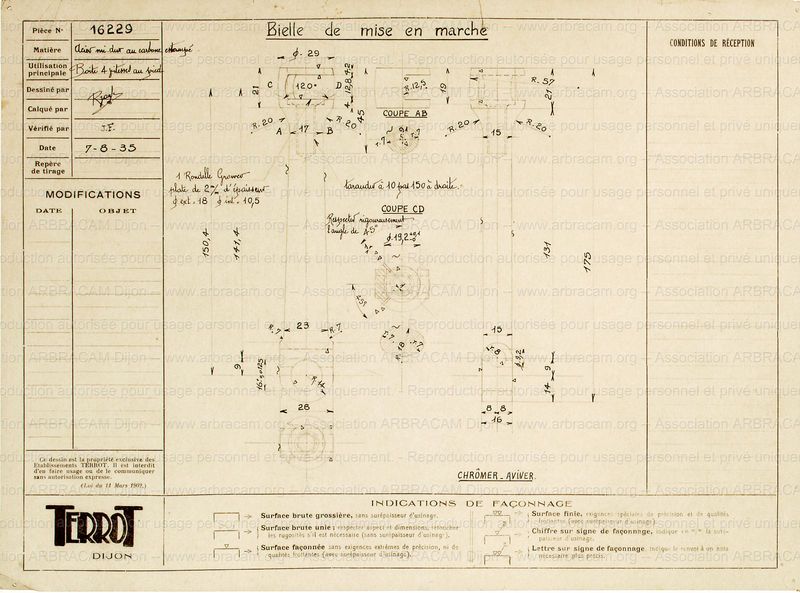 Pièce N° 16229
Matière Acier mi dur au carbone estampé
Utilisation principale Boite 4 vitesses au pied
Dessiné par
Calqué par
Vérifié par J.F.
Date 7-8-35
Repère de tirage
MODIFICATIONS
DATE OBJET
Bielle de mise en marche
CONDITIONS DE RÉCEPTION
ϕ. 29
C 120° D
21
4 12,8 4,2
45
R.20 A 17 B R.20
R.12,5
19
COUPE AB
R.57
21
R.20 15 R.20
1 Rondelle Grower
plate de 2 m/m d'épaisseur
ϕ ext. 18 ϕ int. 10,5
tarauder à 10 pas 150 à droite.
COUPE CD
Respecter rigoureusement
l'angle de 45°
ϕ.13,2
45°
150,4
141,4
131
175
R.7 23 R.7
9
R.14
26
18
15
R.8
9
14
8 8
16
CHRÔMER _ AVIVER
Ce dessin est la propriété exclusive des
Etablissements TERROT. Il est interdit
d'en faire usage ou de le communiquer
sans autorisation expresse.
(Loi du 11 Mars 1902.)
TERROT
DIJON
INDICATIONS DE FAÇONNAGE
Surface brute grossière, sans surépaisseur d'usinage.
Surface brute unie; respecter aspect et dimensions, retoucher
les rugosités s'il est nécessaire (sans surépaisseur d'usinage).
Surface façonnée sans exigences extrêmes de précision, ni de
qualités frottantes (avec surépaisseur d'usinage).
Surface finie, exigences spéciales de précision et de qualités
frottantes (avec surépaisseur d'usinage)
Chiffre sur signe de façonnage, indique en m/m la surépaisseur
d'usinage.
Lettre sur signe de façonnage. Indique le renvoi à un nota
nécessaire plus précis.
Association ARBRACAM Dijon – www.arbracam.org
Reproduction autorisée pour usage personnel et privé uniquement